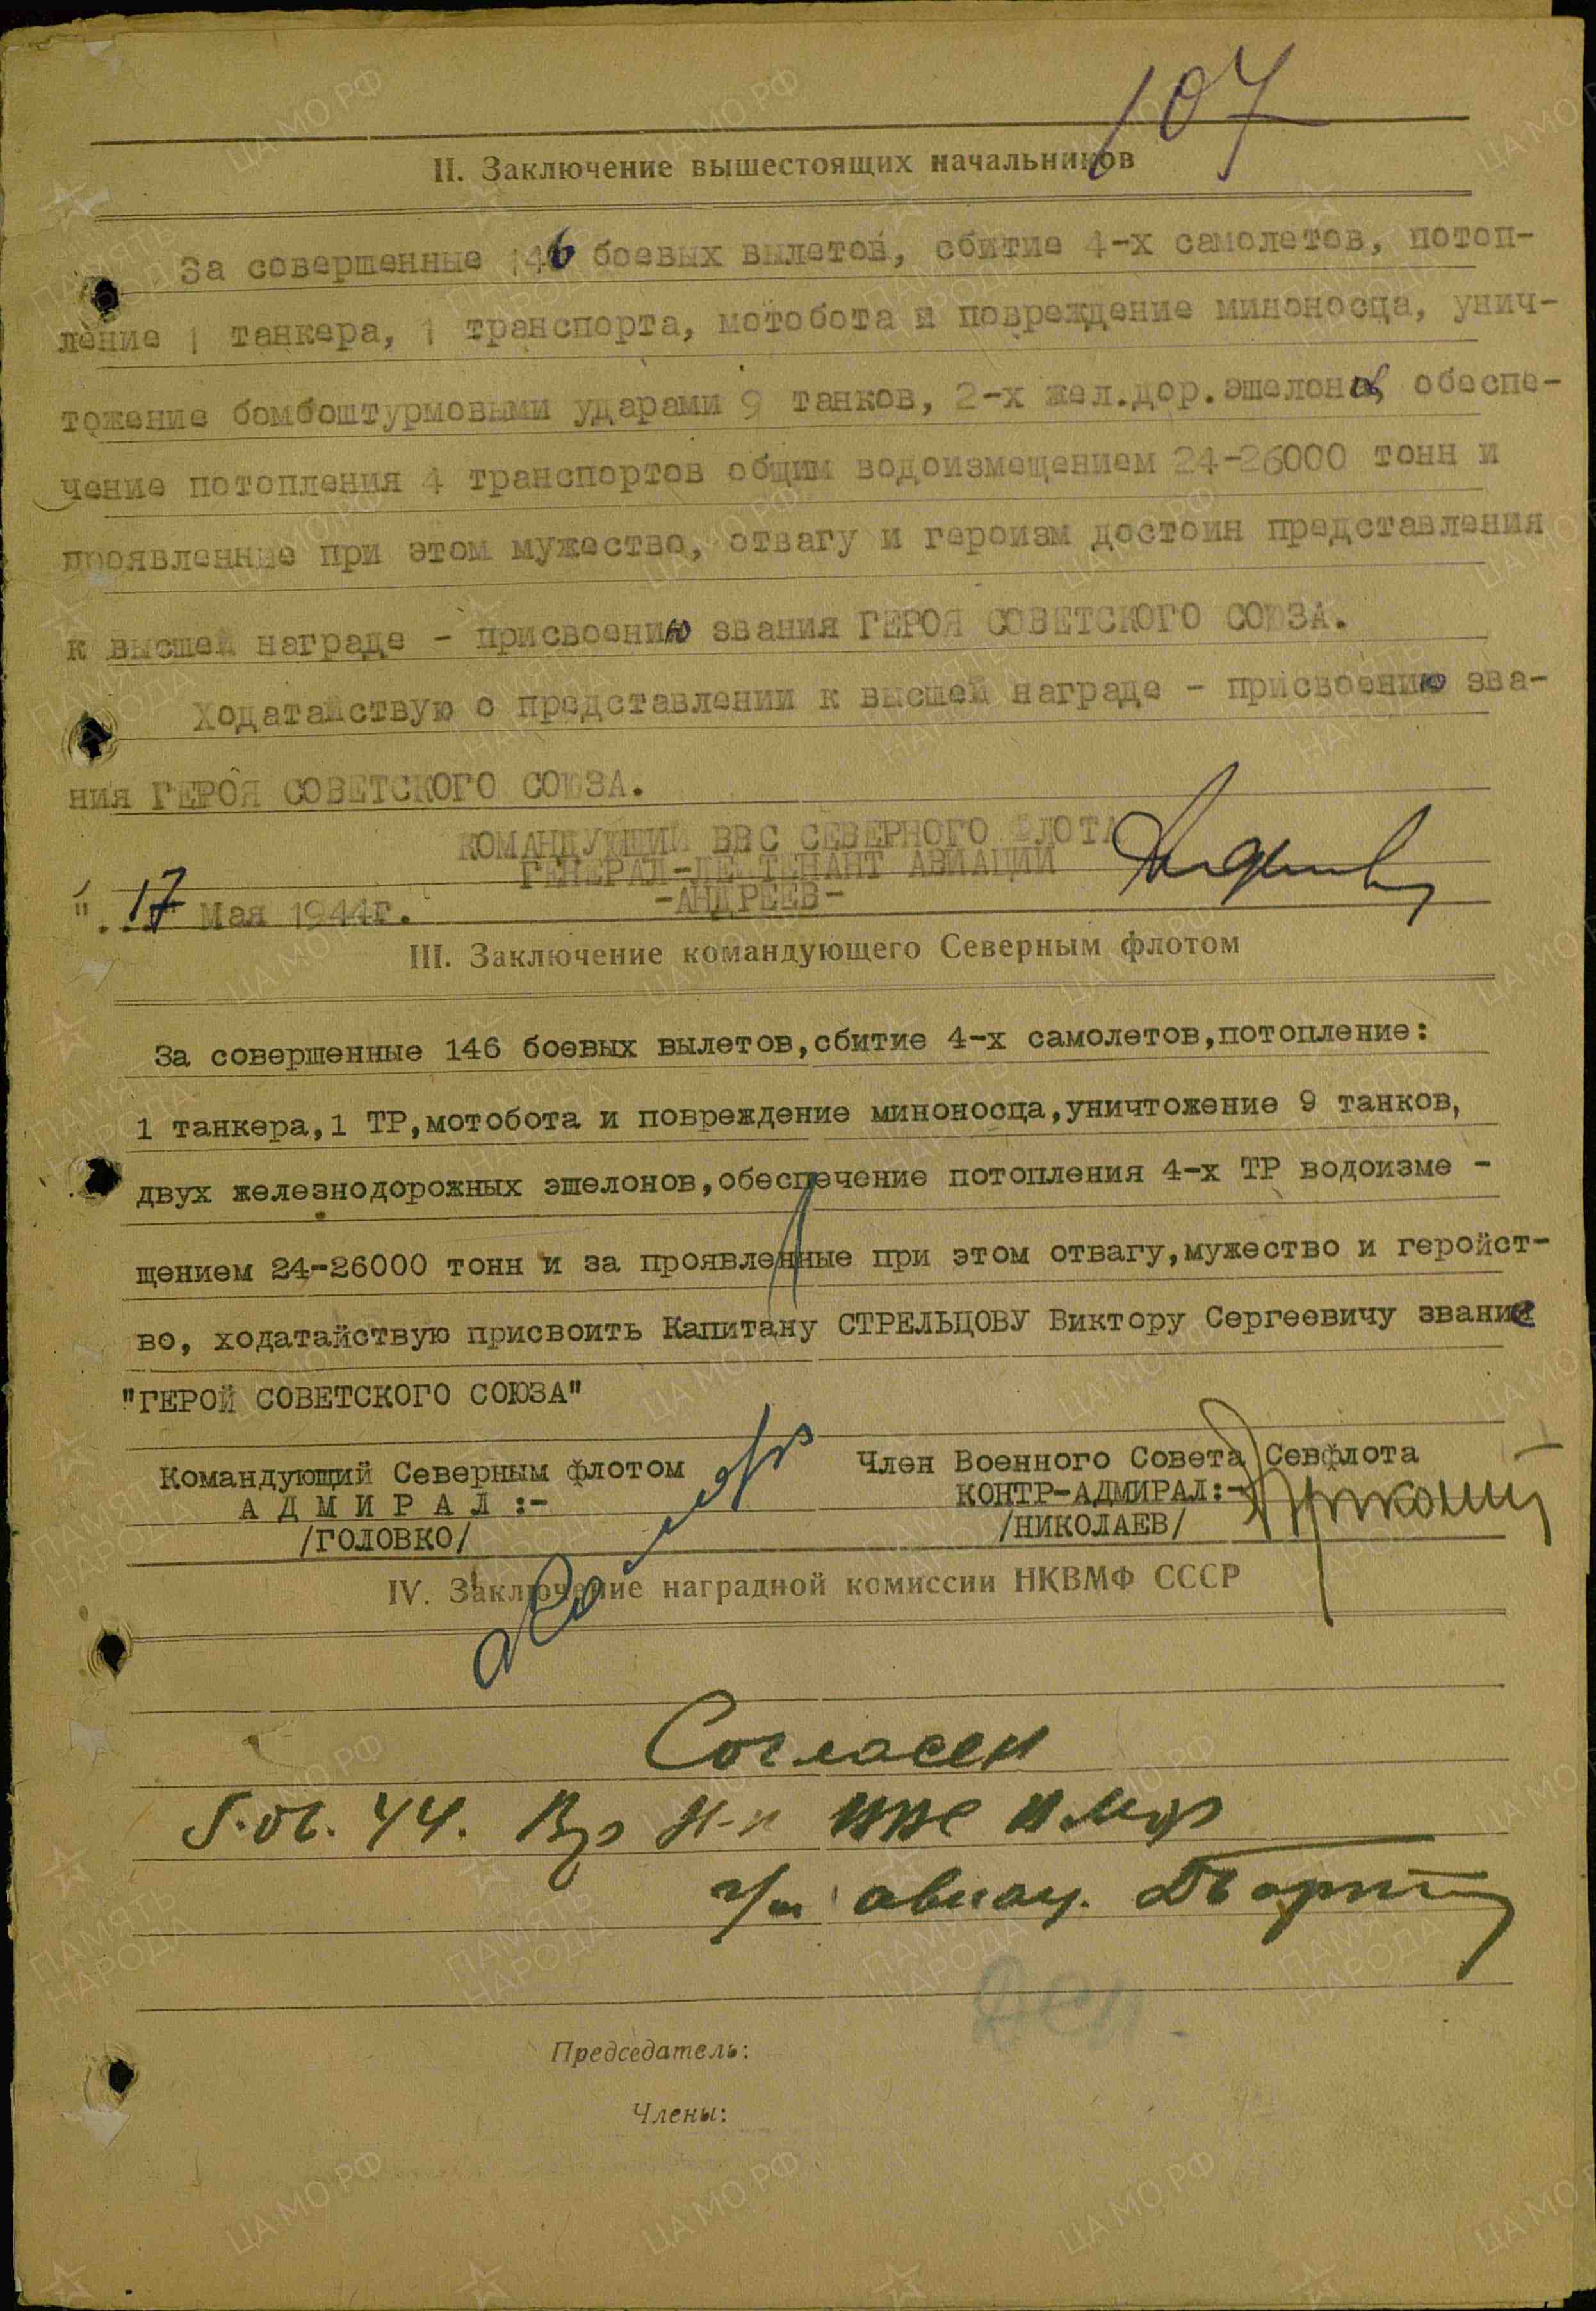 107
II. Заключение вышестоящих начальников
За совершенные 146 боевых вылетов, сбитие 4-х самолетов, потоп-
ление 1 танкера, 1 транспорта, мотобота и повреждение миноносца, унич-
тожение бомбоштурмовыми ударами 9 танков, 2-х жел.дор.эшелонов, обеспе-
чение потопления 4 транспортов общим водоизмещением 24-26000 тонн и
проявленные при этом мужество, отвагу и героизм достоин представления
к высшей награде - присвоению звания ГЕРОЯ СОВЕТСКОГО СОЮЗА.
Ходатайствую о представлении к высшей награде - присвоению зва-
ния ГЕРОЯ СОВЕТСКОГО СОЮЗА.
КОМАНДУЮЩИЙ ВВС СЕВЕРНОГО ФЛОТА
ГЕНЕРАЛ-ЛЕЙТЕНАНТ АВИАЦИИ
-АНДРЕЕВ-
"17" Мая 1944г.
III. Заключение командующего Северным флотом
За совершенные 146 боевых вылетов,сбитие 4-х самолетов,потопление:
1 танкера,1 ТР,мотобота и повреждение миноносца,уничтожение 9 танков,
двух железнодорожных эшелонов,обеспечение потопления 4-х ТР водоизме -
щением 24-26000 тонн и за проявленные при этом отвагу,мужество и геройст-
во, ходатайствую присвоить Капитану СТРЕЛЬЦОВУ Виктору Сергеевичу звание
"ГЕРОЙ СОВЕТСКОГО СОЮЗА"
Командующий Северным флотом
А Д М И Р А Л :-
/ГОЛОВКО/
Член Военного Совета Севфлота
КОНТР-АДМИРАЛ:-
/НИКОЛАЕВ/
IV. Заключение наградной комиссии НКВМФ СССР
Согласен
5.06.44. Вр Н-к ВВС ВМФ
г/м авиац.
Председатель:
Члены: